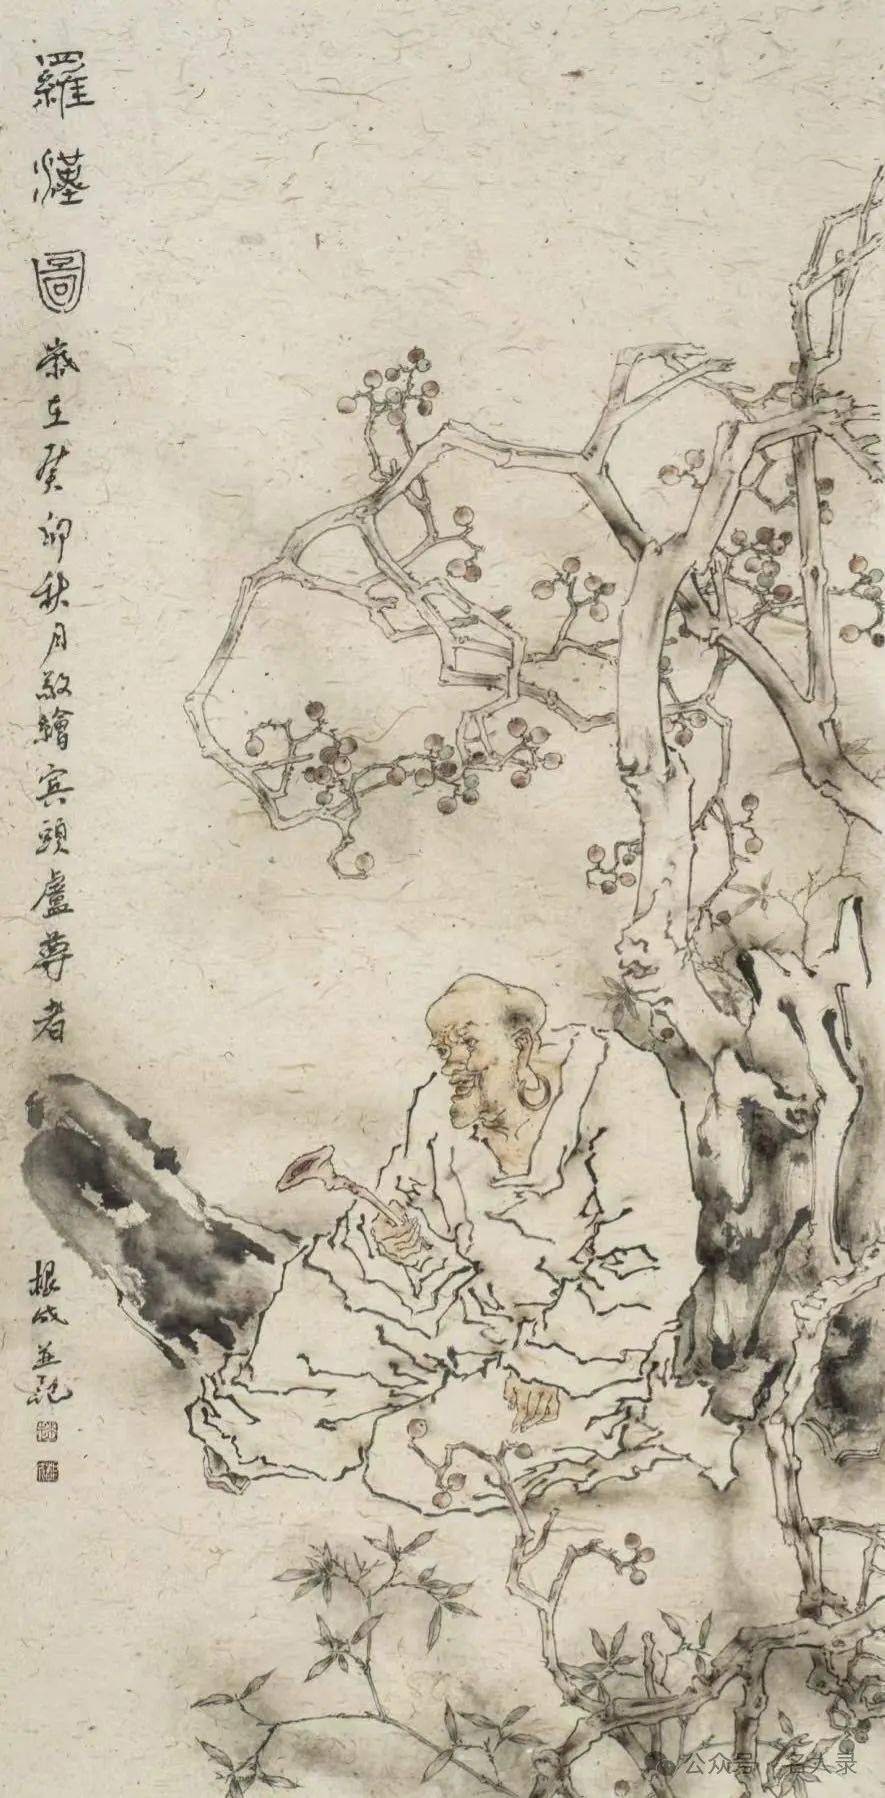 羅漢圖
歲在癸卯秋月敬繪賓頭盧尊者
根成並記
公众号 · 名人录